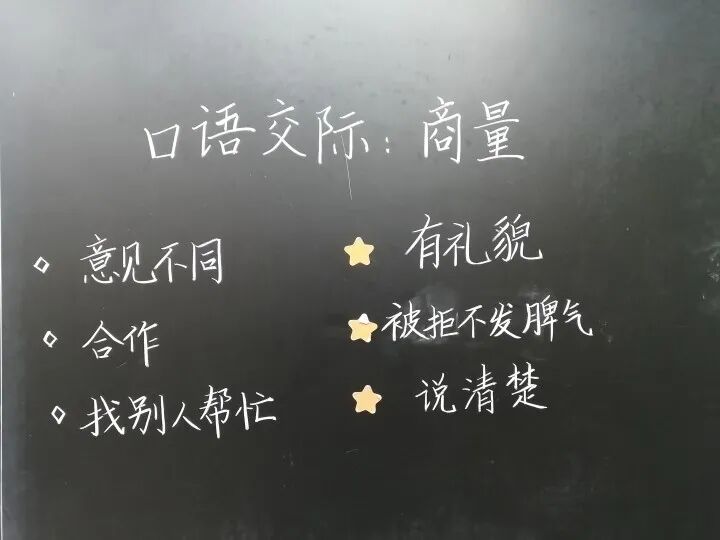 口语交际:商量
意见不同
有礼貌
合作
被拒不发脾气
找别人帮忙
说清楚